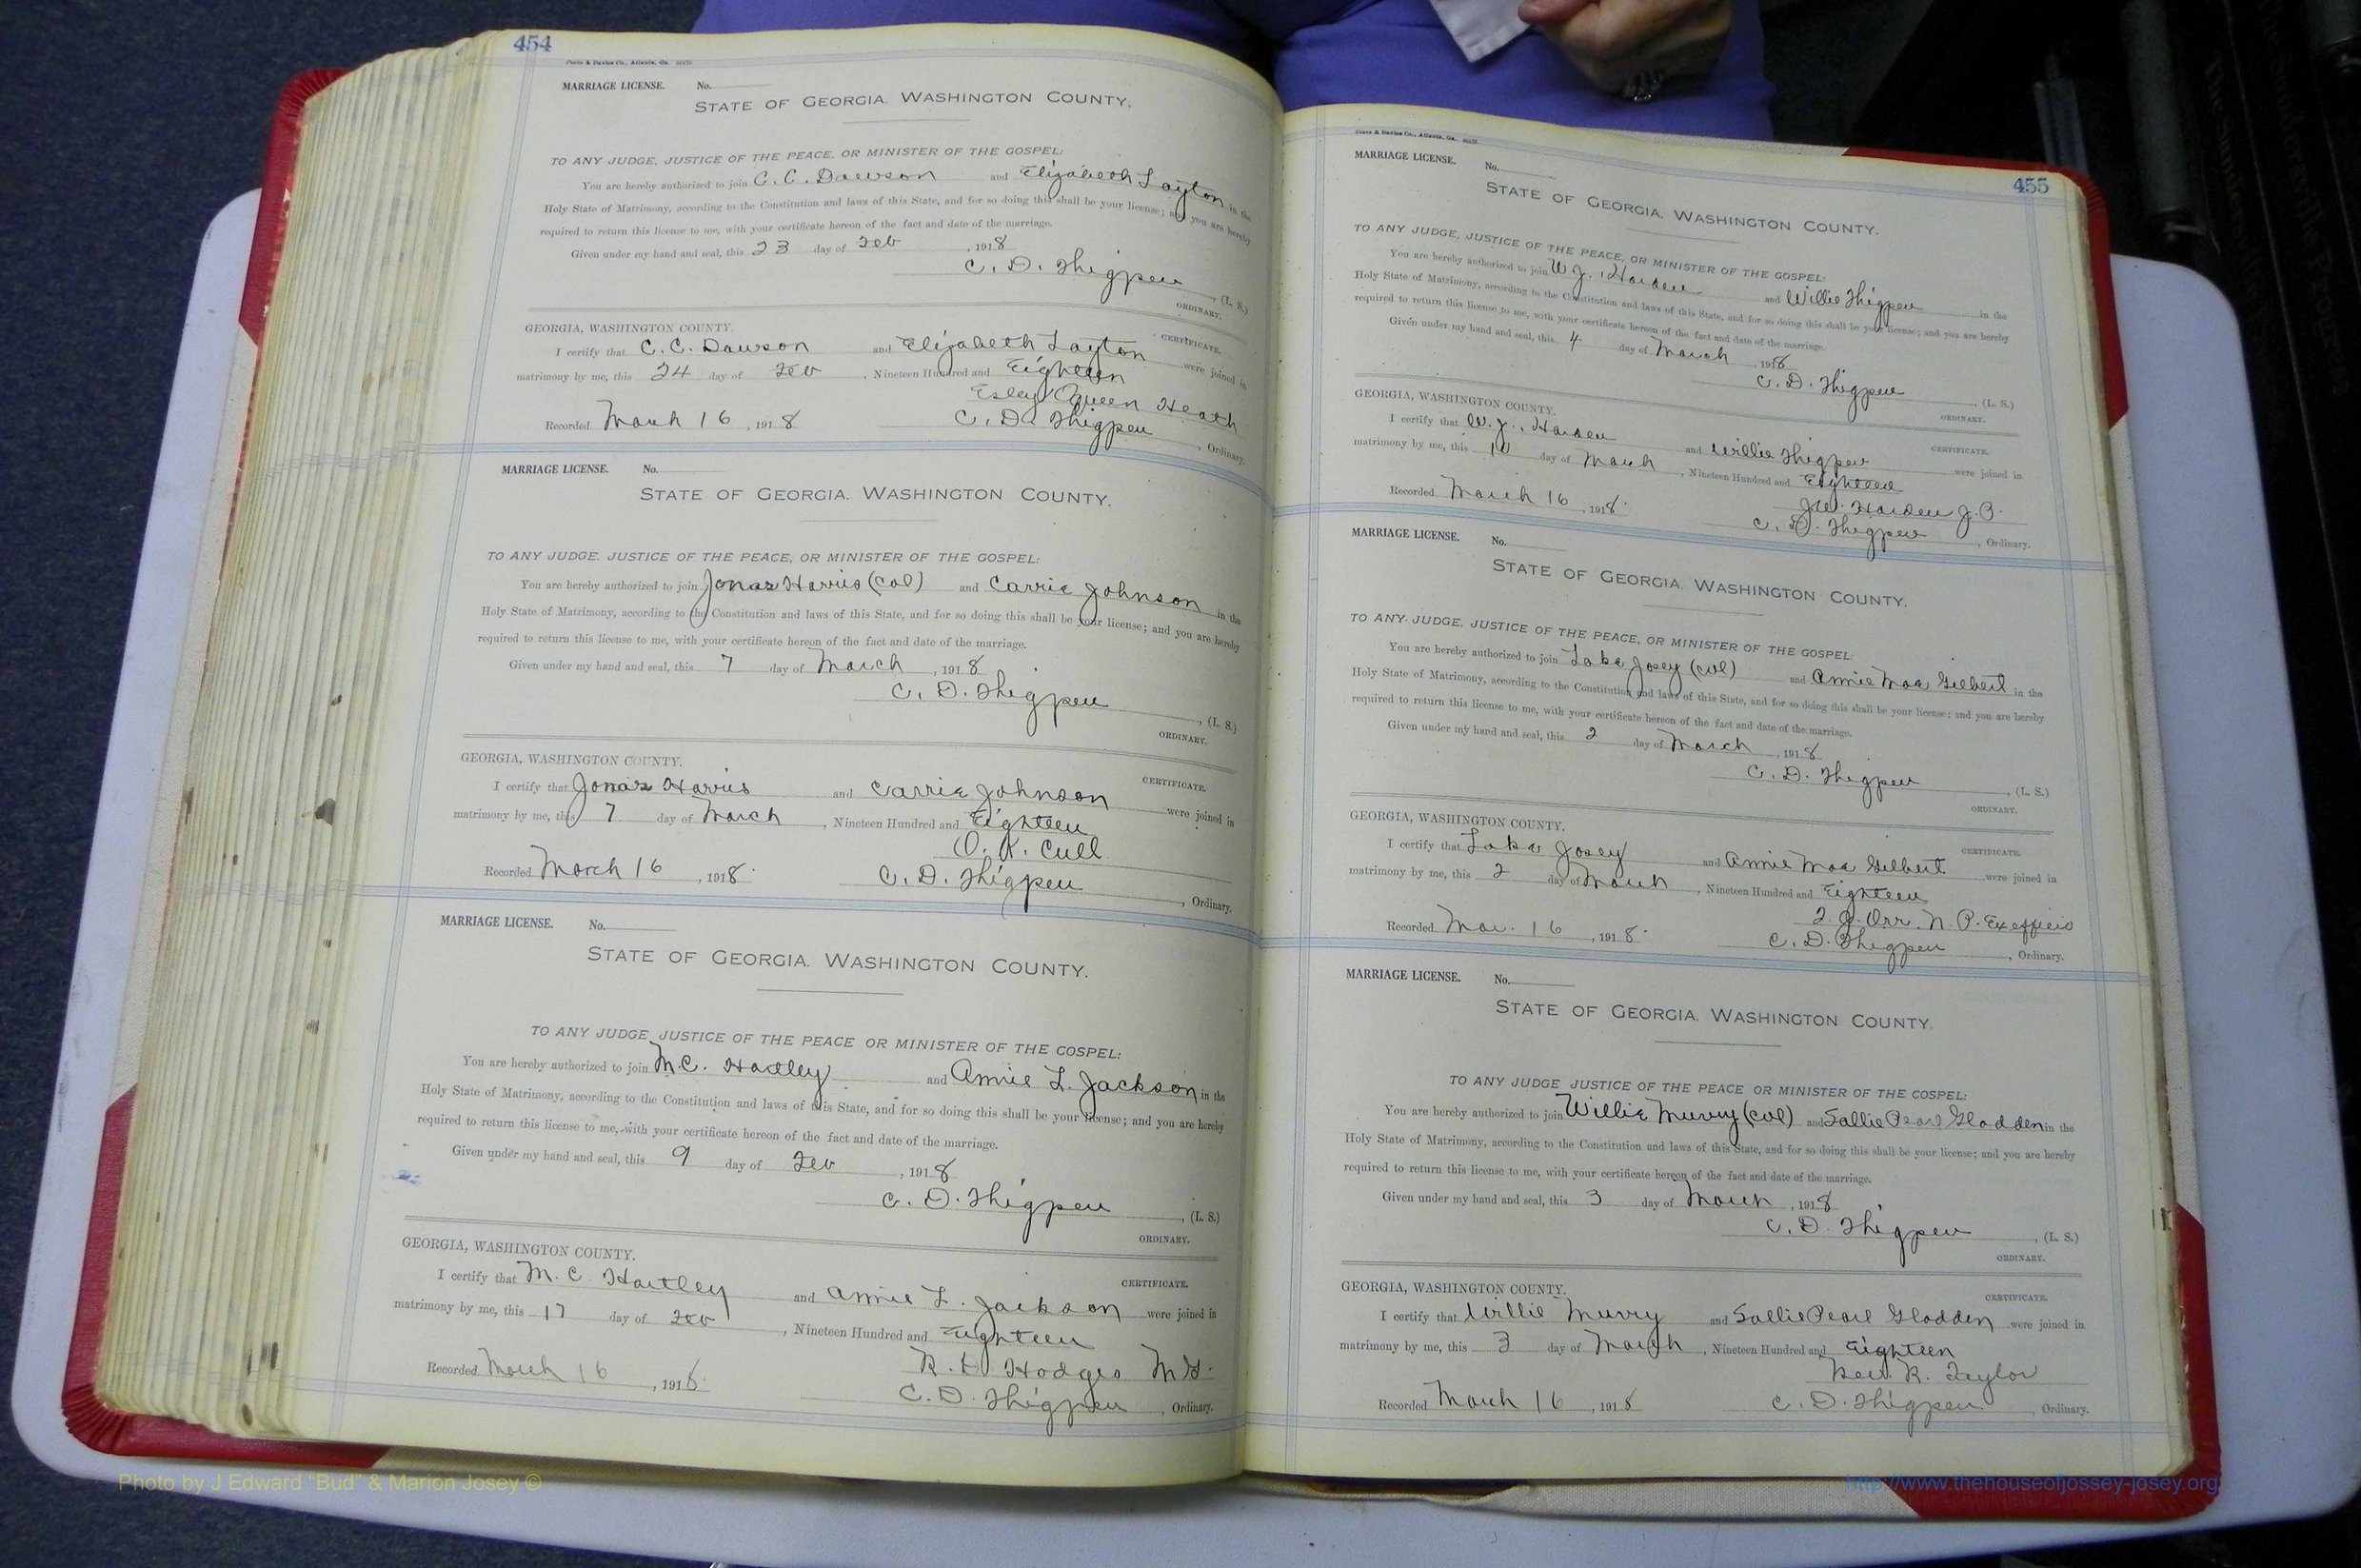 454
MARRIAGE LICENSE. No.
STATE OF GEORGIA. WASHINGTON COUNTY.
TO ANY JUDGE, JUSTICE OF THE PEACE, OR MINISTER OF THE GOSPEL:
You are hereby authorized to join C. C. Dawson and Elizabeth Layton in the
Holy State of Matrimony, according to the Constitution and laws of this State, and for so doing this shall be your license; and you are hereby
required to return this license to me, with your certificate hereon of the fact and date of the marriage.
Given under my hand and seal, this 23 day of Feb, 1918
C. D. Thigpen, (L. S.)
ORDINARY.
GEORGIA, WASHINGTON COUNTY.
CERTIFICATE.
I certify that C. C. Dawson and Elizabeth Layton were joined in
matrimony by me, this 24 day of Feb, Nineteen Hundred and Eighteen
Esley Queen Heath
Recorded March 16, 1918 C. D. Thigpen, Ordinary.
MARRIAGE LICENSE. No.
STATE OF GEORGIA. WASHINGTON COUNTY.
TO ANY JUDGE, JUSTICE OF THE PEACE, OR MINISTER OF THE GOSPEL:
You are hereby authorized to join Jonas Harris (Col) and Carrie Johnson in the
Holy State of Matrimony, according to the Constitution and laws of this State, and for so doing this shall be your license; and you are hereby
required to return this license to me, with your certificate hereon of the fact and date of the marriage.
Given under my hand and seal, this 7 day of March, 1918
C. D. Thigpen, (L. S.)
ORDINARY.
GEORGIA, WASHINGTON COUNTY.
CERTIFICATE.
I certify that Jonas Harris and Carrie Johnson were joined in
matrimony by me, this 7 day of March, Nineteen Hundred and Eighteen
O. K. Cull
Recorded March 16, 1918 C. D. Thigpen, Ordinary.
MARRIAGE LICENSE. No.
STATE OF GEORGIA. WASHINGTON COUNTY.
TO ANY JUDGE JUSTICE OF THE PEACE OR MINISTER OF THE GOSPEL:
You are hereby authorized to join M. C. Hartley and Annie L. Jackson in the
Holy State of Matrimony, according to the Constitution and laws of this State, and for so doing this shall be your license; and you are hereby
required to return this license to me, with your certificate hereon of the fact and date of the marriage.
Given under my hand and seal, this 9 day of Feb, 1918
C. D. Thigpen, (L. S.)
ORDINARY.
GEORGIA, WASHINGTON COUNTY.
CERTIFICATE.
I certify that M. C. Hartley and Annie L. Jackson were joined in
matrimony by me, this 17 day of Feb, Nineteen Hundred and Eighteen
Hodges M.G.
Recorded March 16, 1918 C. D. Thigpen, Ordinary.
455
MARRIAGE LICENSE. No.
STATE OF GEORGIA. WASHINGTON COUNTY.
TO ANY JUDGE, JUSTICE OF THE PEACE, OR MINISTER OF THE GOSPEL:
You are hereby authorized to join W. J. Harden and Willie Thigpen in the
Holy State of Matrimony, according to the Constitution and laws of this State, and for so doing this shall be your license; and you are hereby
required to return this license to me, with your certificate hereon of the fact and date of the marriage.
Given under my hand and seal, this 4 day of March, 1918
C. D. Thigpen, (L. S.)
ORDINARY.
GEORGIA, WASHINGTON COUNTY.
CERTIFICATE.
I certify that W. J. Harden and Willie Thigpen were joined in
matrimony by me, this 10 day of March, Nineteen Hundred and Eighteen
J. W. Harden J. P.
Recorded March 16, 1918 C. D. Thigpen, Ordinary.
MARRIAGE LICENSE. No.
STATE OF GEORGIA. WASHINGTON COUNTY.
TO ANY JUDGE, JUSTICE OF THE PEACE, OR MINISTER OF THE GOSPEL:
You are hereby authorized to join Josey (Col) and Annie Mae Gilbert in the
Holy State of Matrimony, according to the Constitution and laws of this State, and for so doing this shall be your license; and you are hereby
required to return this license to me, with your certificate hereon of the fact and date of the marriage.
Given under my hand and seal, this 2 day of March, 1918
C. D. Thigpen, (L. S.)
ORDINARY.
GEORGIA, WASHINGTON COUNTY.
CERTIFICATE.
I certify that Josey and Annie Mae Gilbert were joined in
matrimony by me, this 2 day of March, Nineteen Hundred and Eighteen
Orr. N. P. Ex officio
Recorded Mar. 16, 1918 C. D. Thigpen, Ordinary.
MARRIAGE LICENSE. No.
STATE OF GEORGIA. WASHINGTON COUNTY.
TO ANY JUDGE JUSTICE OF THE PEACE OR MINISTER OF THE GOSPEL:
You are hereby authorized to join Willie Murry (Col) and Sallie Pearl Gladden in the
Holy State of Matrimony, according to the Constitution and laws of this State, and for so doing this shall be your license; and you are hereby
required to return this license to me, with your certificate hereon of the fact and date of the marriage.
Given under my hand and seal, this 3 day of March, 1918
C. D. Thigpen, (L. S.)
ORDINARY.
GEORGIA, WASHINGTON COUNTY.
CERTIFICATE.
I certify that Willie Murry and Sallie Pearl Gladden were joined in
matrimony by me, this 3 day of March, Nineteen Hundred and Eighteen
Rev. R. Taylor
Recorded March 16, 1918 C. D. Thigpen, Ordinary.
Photo by J Edward “Bud” & Marion Josey ©
http://www.thehouseofjossey-josey.org